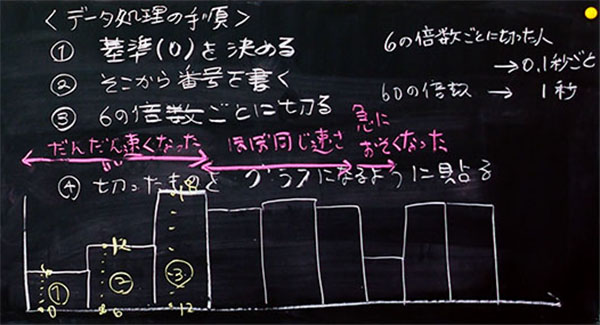 ＜データ処理の手順＞
① 基準(0)を決める
② そこから番号を書く
③ 6の倍数ごとに切る
6の倍数ごとに切った人
→0.1秒ごと
60の倍数 → 1秒
だんだん速くなった
ほぼ同じ速さ
急に
おそくなった
④ 切ったものを グラフになるように貼る
① ② ③
0 6 12